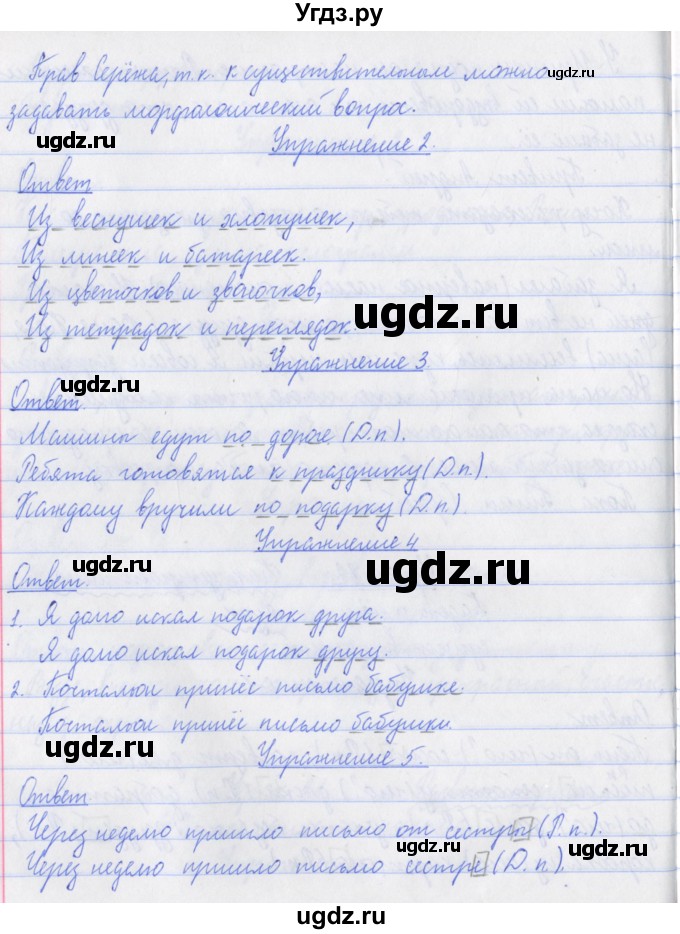 Угдз.ру
Прав Серёжа, т.к. к существительным можно
задавать морфологический вопрос.
ugdz.ru
ugdz.ru
Упражнение 2.
ugdz.ru
Ответ
Из веснушек и хлопушек,
Из линеек и батареек.
ugdz.ru
Из цветочков и звоночков,
Из тетрадок и переглядок.
ugdz.ru
Упражнение 3.
ugdz.ru
Ответ
Машины едут по дороге (Д.п.).
ugdz.ru
Ребята готовятся к празднику (Д.п.).
Каждому вручили по подарку (Д.п.).
ugdz.ru
Упражнение 4
ugdz.ru
Ответ.
1. Я долго искал подарок друга.
Я долго искал подарок другу.
ugdz.ru
2. Почтальон принёс письмо бабушке.
Почтальон принёс письмо бабушки.
ugdz.ru
ugdz.ru
Упражнение 5.
Ответ
Через неделю пришло письмо от сестры (Р.п.).
ugdz.ru
ugdz.ru
Через неделю пришло письмо сестре (Д.п.).
ugdz.ru